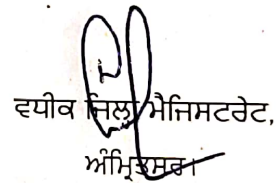 ਵਧੀਕ ਜਿਲ੍ਹਾ ਮੈਜਿਸਟਰੇਟ,
ਅੰਮ੍ਰਿਤਸਰ।